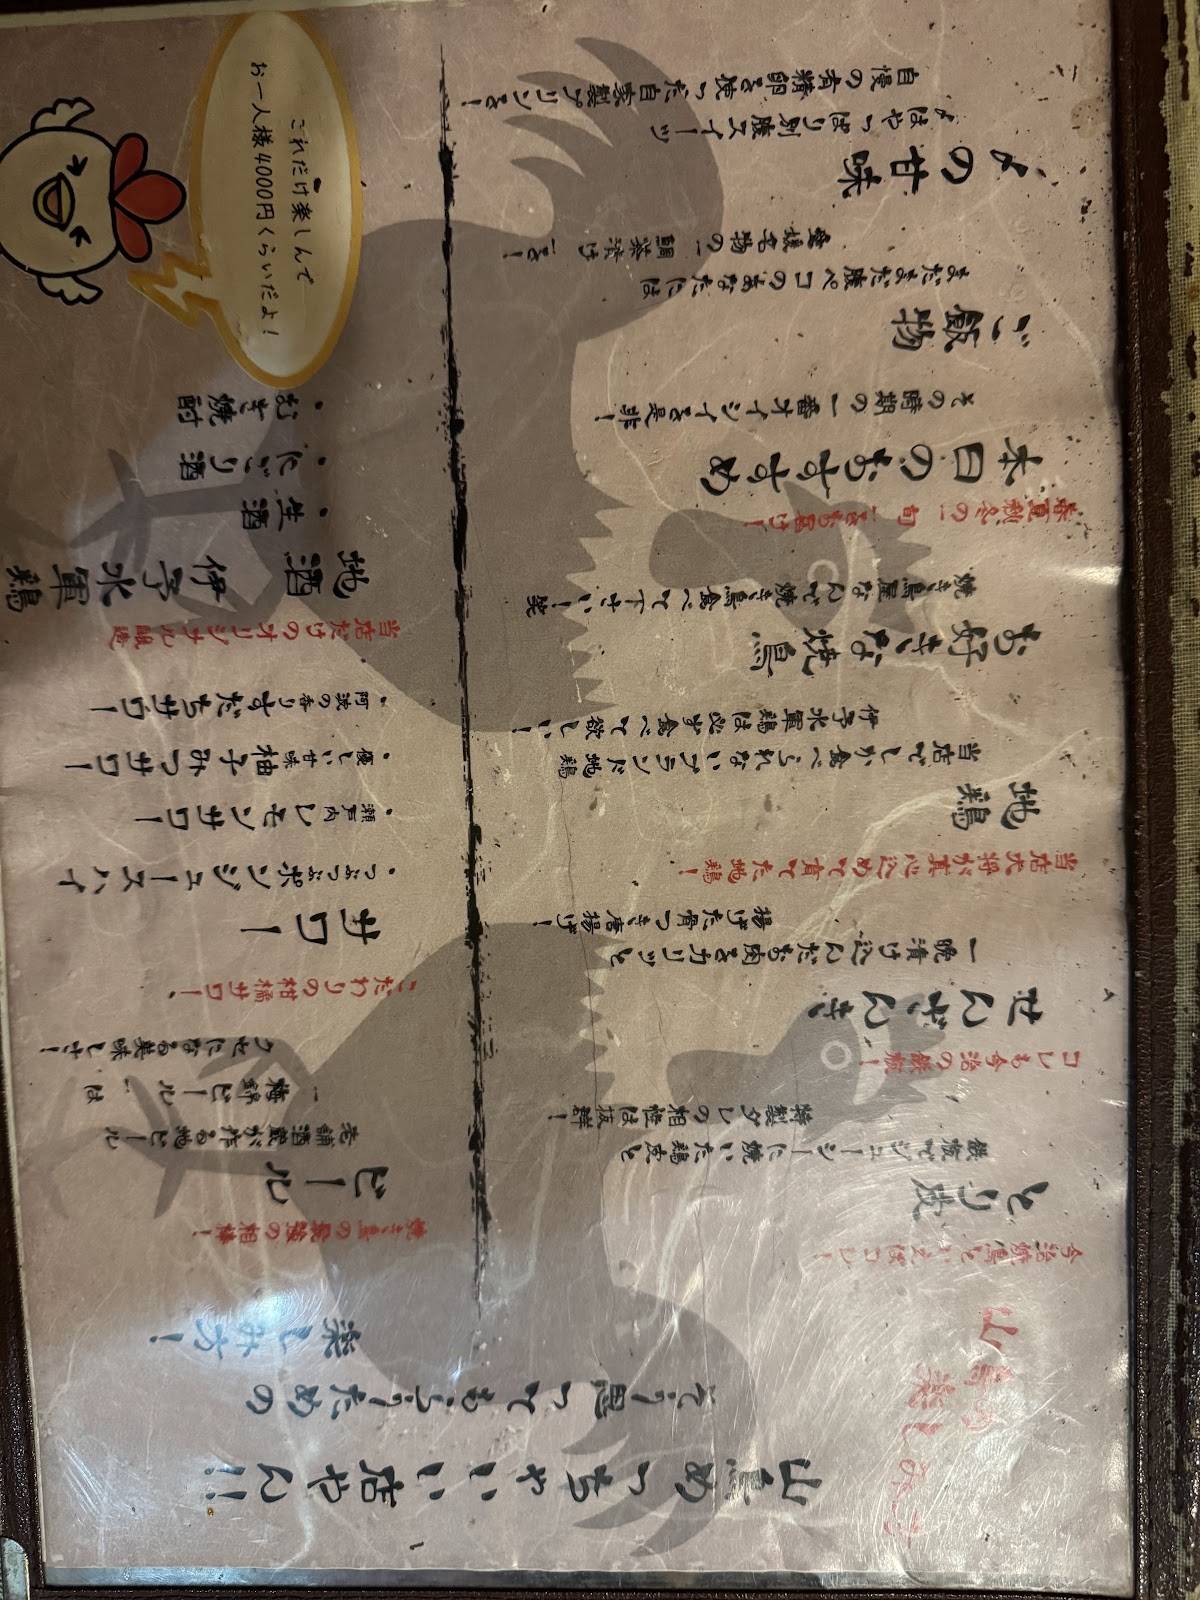 山鳥の楽しみ方
山鳥めっちゃいい店やん!!
そう思ってもらうための
楽しみ方!
今治焼鳥といえばコレ!
とり皮
鉄板でジューシーに焼いた鶏皮と
特製タレの相性は抜群!
コレも今治の鉄板!
せんざんき
一晩漬け込んだお肉をカリッと
揚げた骨つき唐揚げ!
当店大将が真心込めて育てた地鶏
地鶏
当店でしか食べられないブランド地鶏
伊予水軍鶏は必ず食べて欲しい!
お好きな焼鳥
焼き鳥屋なんで焼き鳥食べて下さい!笑
春夏秋冬の「旬」をお届け!
本日のおすすめ
その時期の一番オイシイを是非!
ご飯物
まだまだ腹ペコのあなたには
愛媛名物の「鯛茶漬け」を!
〆の甘味
〆はやっぱり別腹スイーツ
自慢の有精卵を使った自家製プリンを!
焼き鳥の最強の相棒!
ビール
老舗酒蔵が作る地ビール
「梅錦ビール」は
クセになる美味しさ!
こだわりの柑橘サワー、
サワー
・つぶつぶポンジュースハイ
・瀬戸内レモンサワー
・優しい甘味柚子みつサワー
・阿波の香りすだちサワー
当店だけのオリジナル醸造
地酒 伊予水軍鶏
・生酒
・にごり酒
・むぎ焼酎
これだけ楽しんで
お一人様4000円くらいだよ!